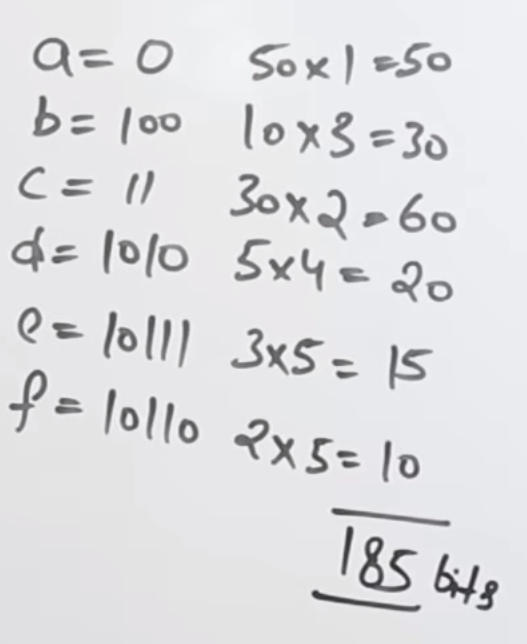 a= 0 50x1=50
b= 100 10x3=30
c= 11 30x2=60
d= 1010 5x4= 20
e= 10111 3x5= 15
f= 10110 2x5= 10
185 bits